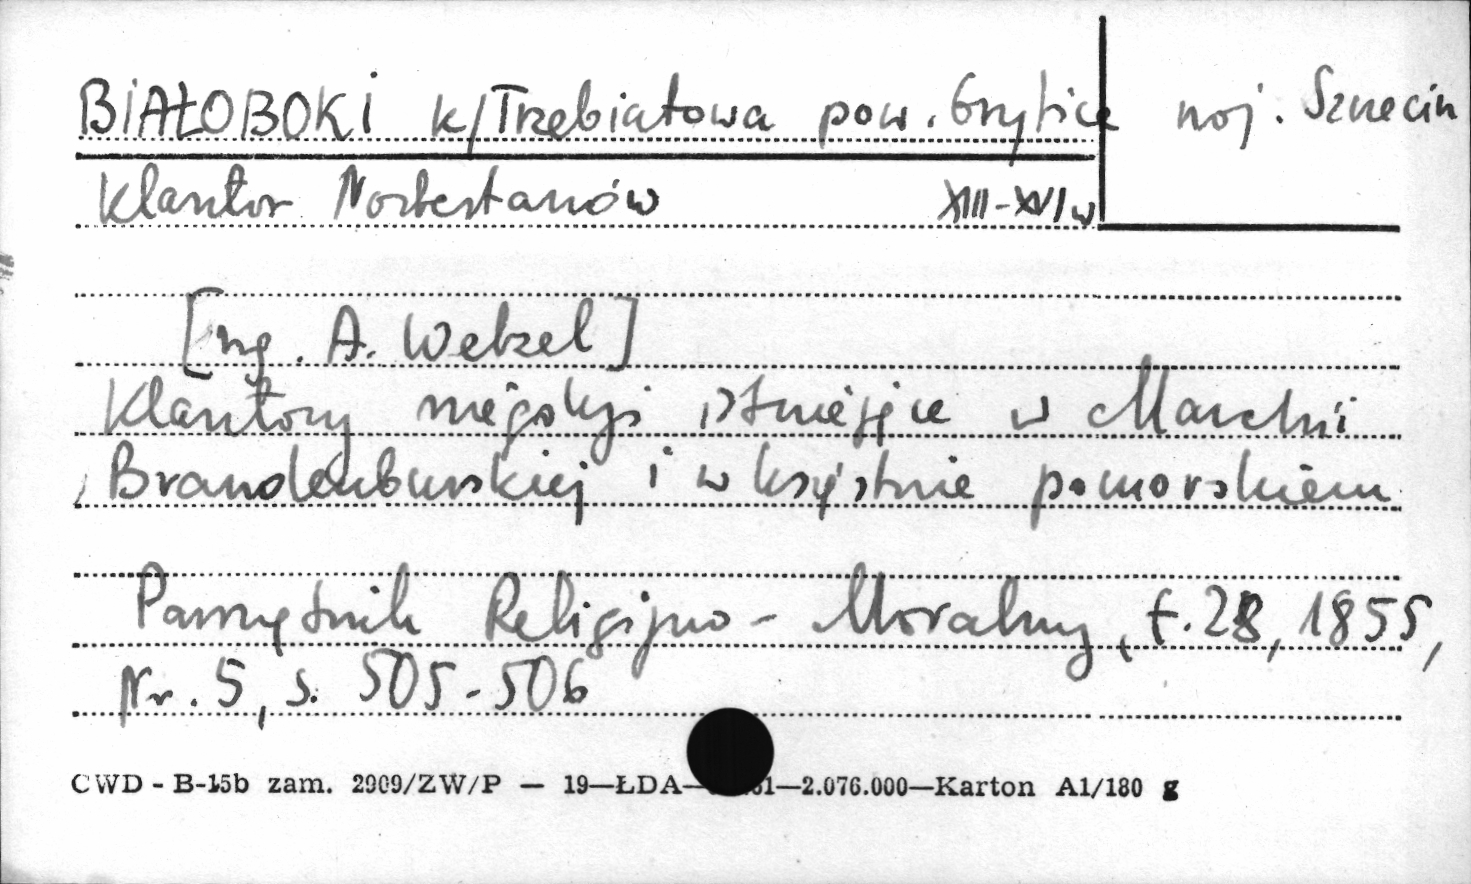 BIAŁOBOKI k/Trzebiatowa pow. Gryfice woj. Szczecin
Klasztor Norbertanów XIII-XVI w
[wg. A. Wetzel]
Klasztory niegdyś istniejące w Marchii
Brandenburskiej i w księstwie pomorskiem
Pamiętnik Religijno-Moralny, t. 28, 1855,
Nr. 5, s. 505-506
CWD - B-15b zam. 2909/ZW/P — 19—ŁDA— 61—2.076.000—Karton A1/180 g